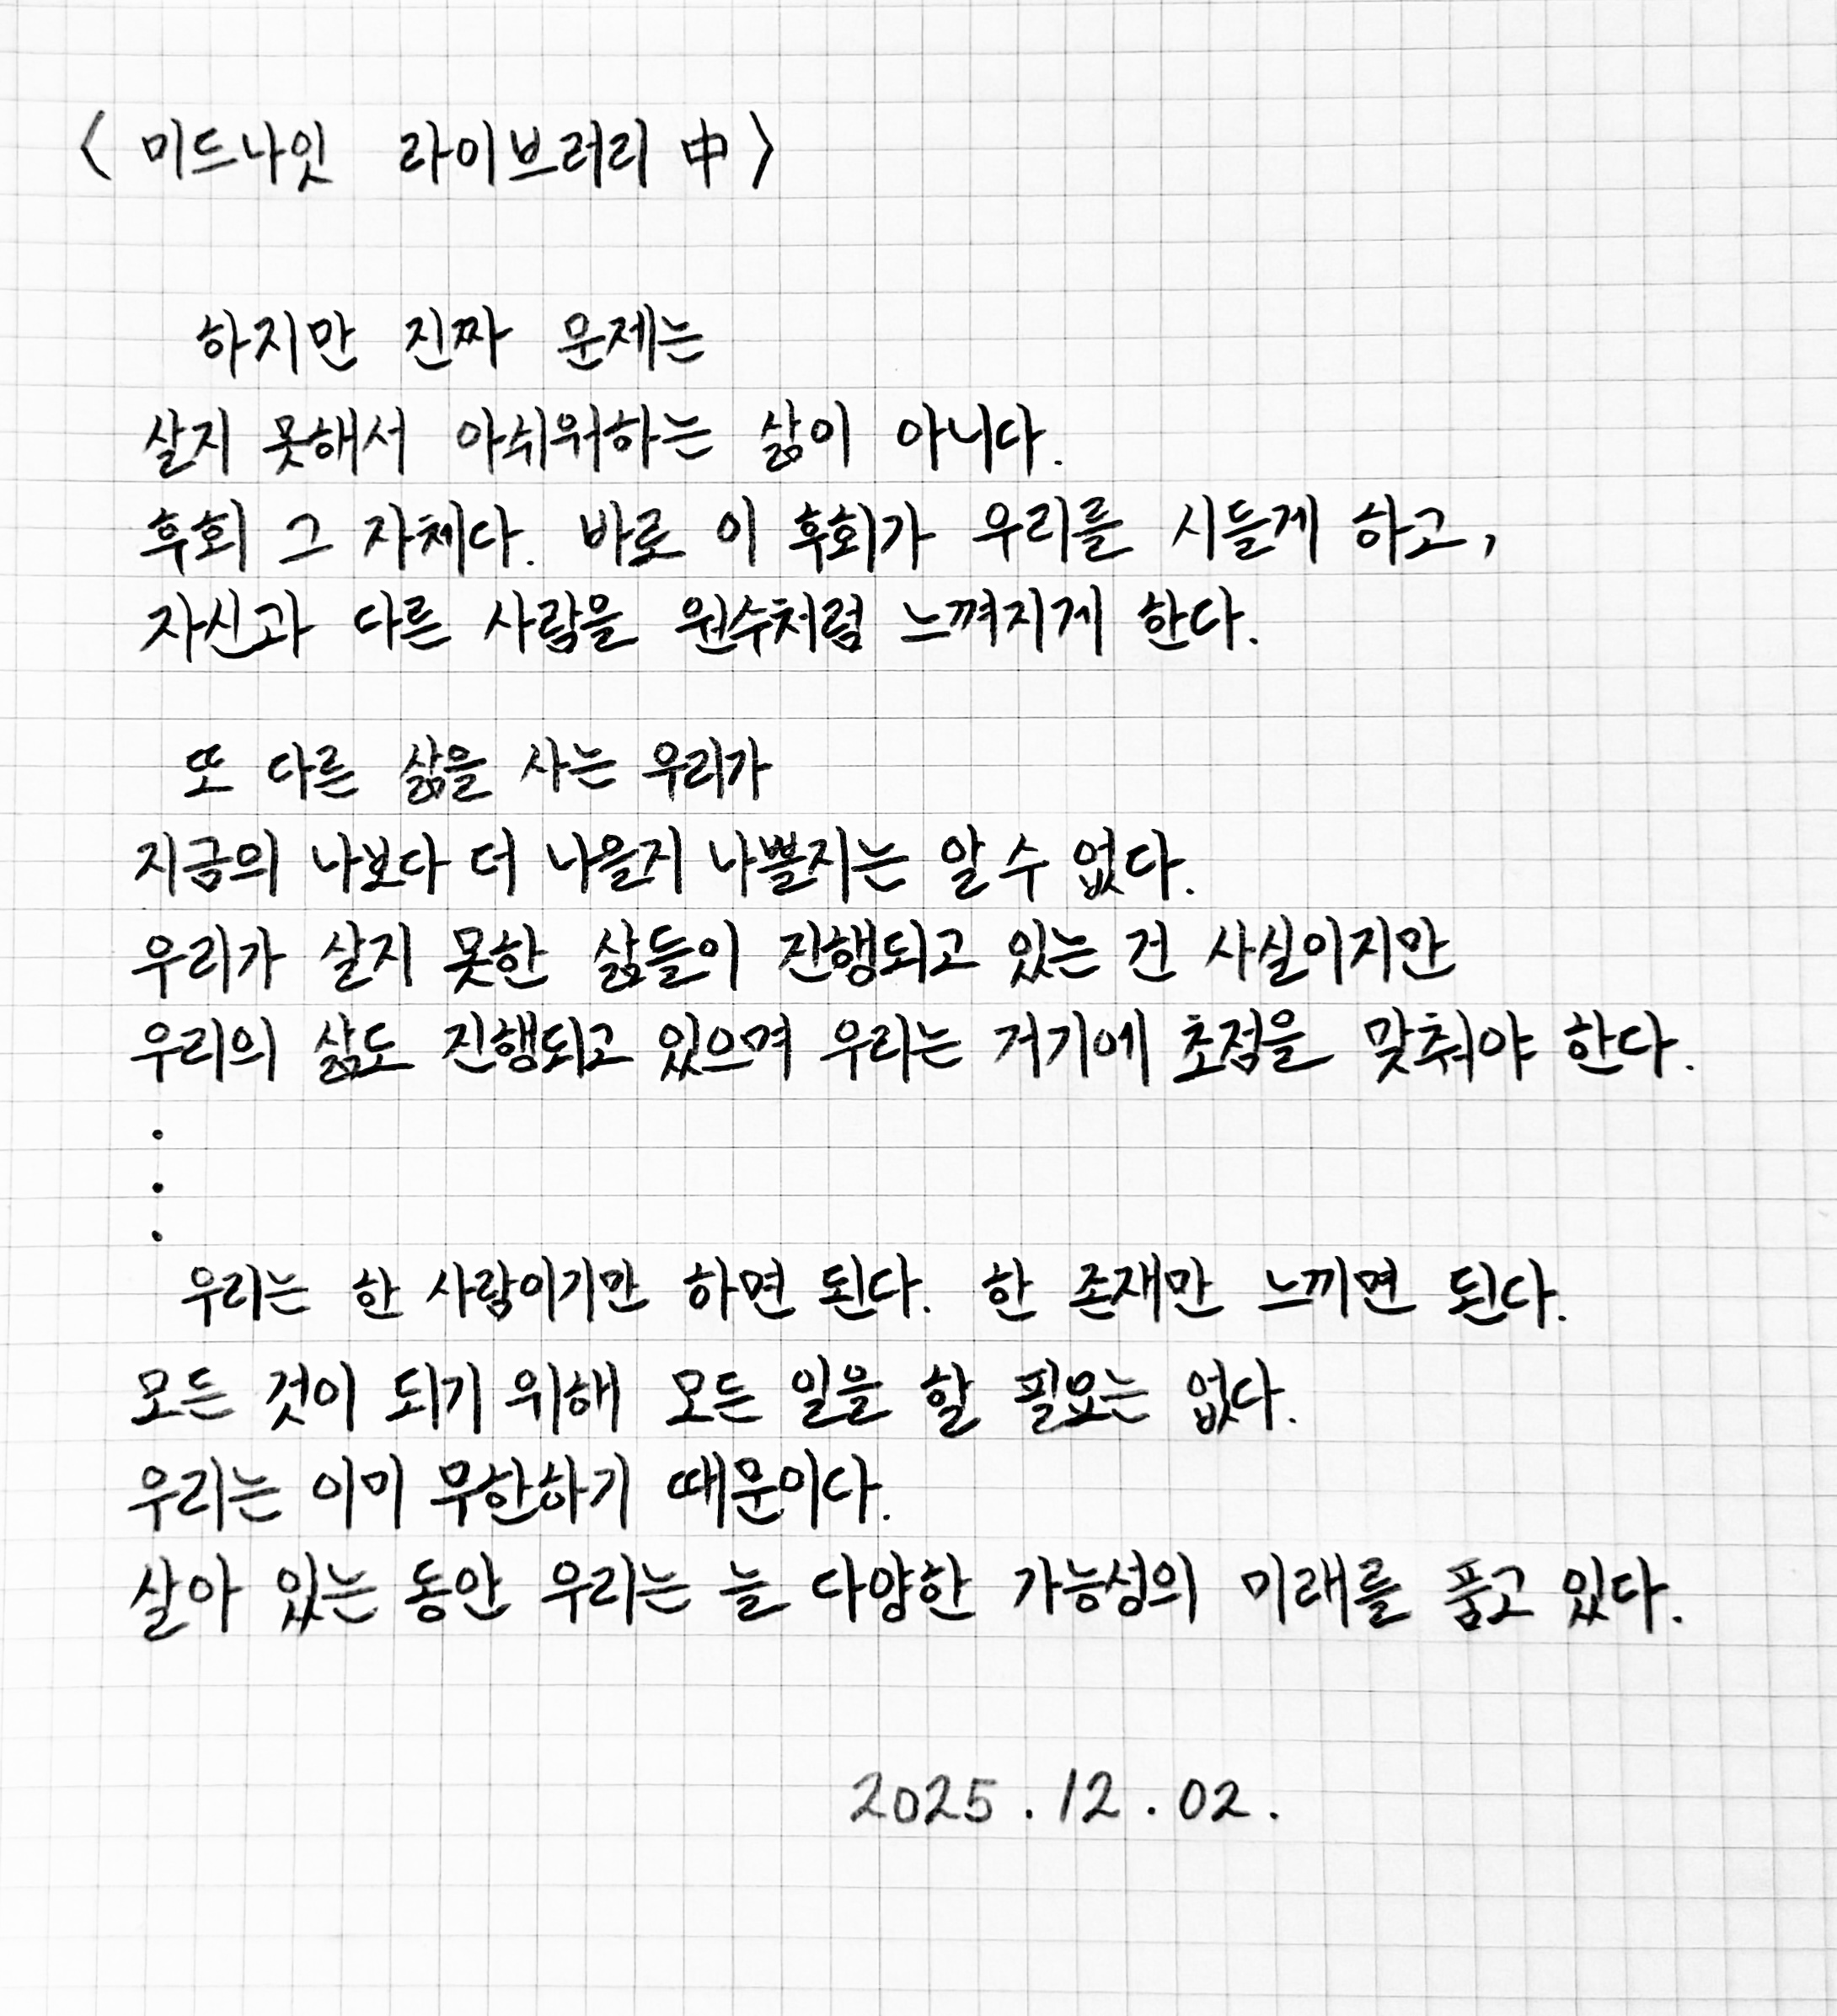 < 미드나잇 라이브러리 中 >
하지만 진짜 문제는
살지 못해서 아쉬워하는 삶이 아니다.
후회 그 자체다. 바로 이 후회가 우리를 시들게 하고,
자신과 다른 사람을 원수처럼 느껴지게 한다.
또 다른 삶을 사는 우리가
지금의 나보다 더 나을지 나쁠지는 알 수 없다.
우리가 살지 못한 삶들이 진행되고 있는 건 사실이지만
우리의 삶도 진행되고 있으며 우리는 거기에 초점을 맞춰야 한다.
.
.
.
우리는 한 사람이기만 하면 된다. 한 존재만 느끼면 된다.
모든 것이 되기 위해 모든 일을 할 필요는 없다.
우리는 이미 무한하기 때문이다.
살아 있는 동안 우리는 늘 다양한 가능성의 미래를 품고 있다.
2025. 12. 02.